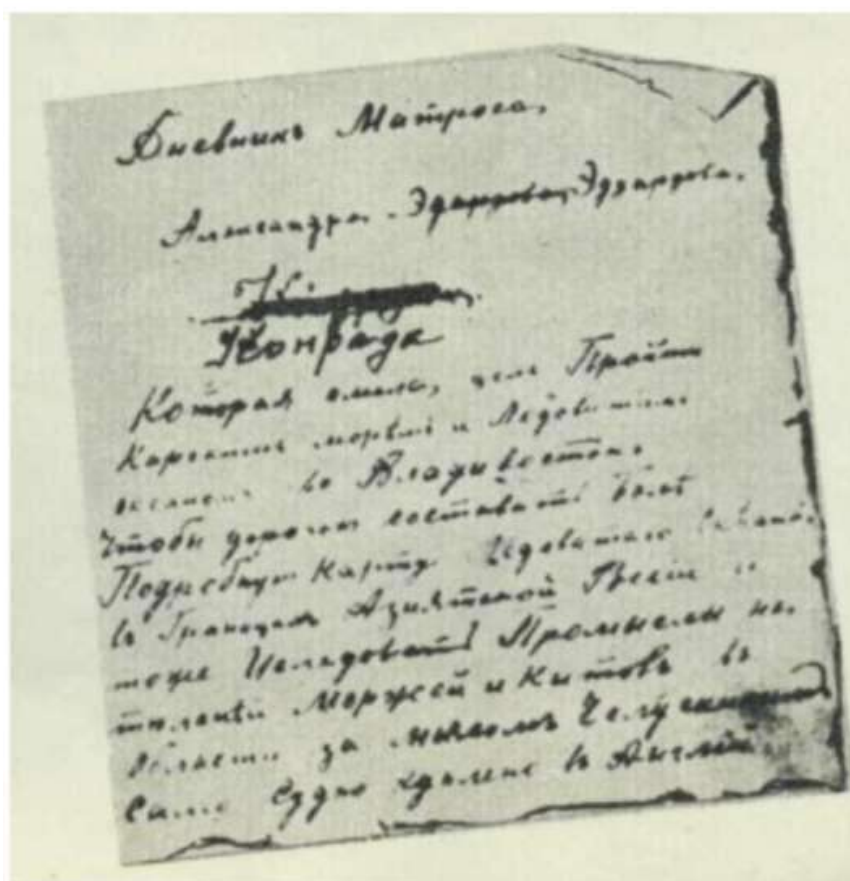 Дневникъ Матроса,
Александра Эдуардова.
Конрада
Которая имела, цель Пройти
Карскимъ моремъ и Ледовитымъ
океаномъ во Владивостокъ.
Чтобы дорогой составить болѣ
Подробную Карту Ледовитаго Океана
въ Границахъ Азиятской
тоже Изследоватъ Промыслы на
тюленей Моржей и Китовъ въ
области за мысомъ
Само Судно сделано въ Англiи